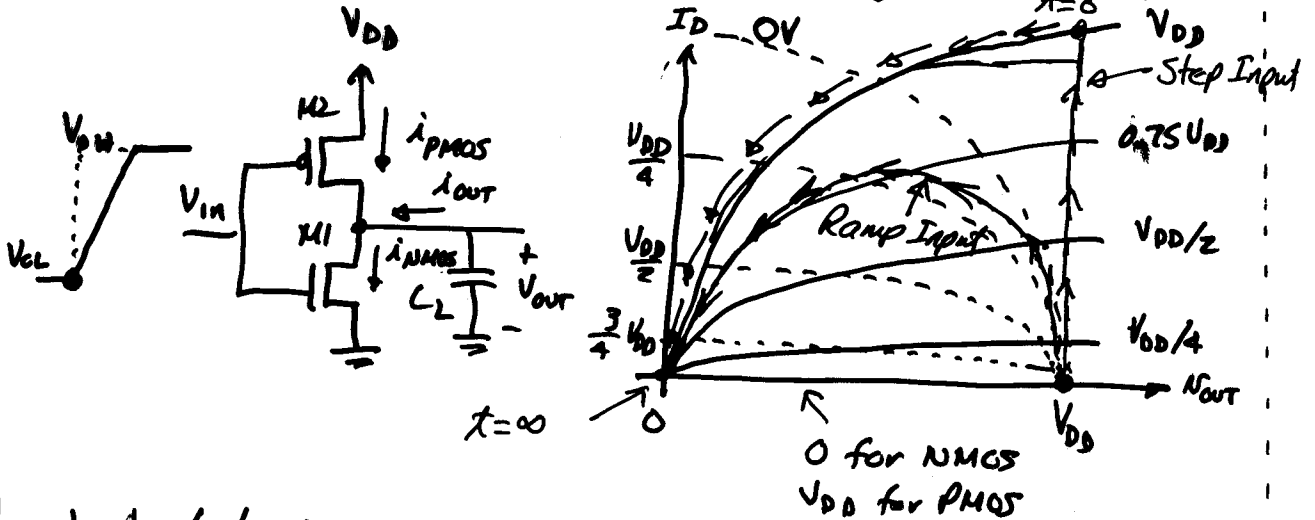 V_DD
M2
i_PMOS
i_OUT
V_in
M1
i_NMOS
C_L
+
V_OUT
-
I_D
0V
t=0
V_DD
Step Input
V_DD/4
0.75 V_DD
Ramp Input
V_DD/2
V_DD/2
3/4 V_DD
V_DD/4
v_OUT
t=∞
0
V_DD
0 for NMOS
V_DD for PMOS